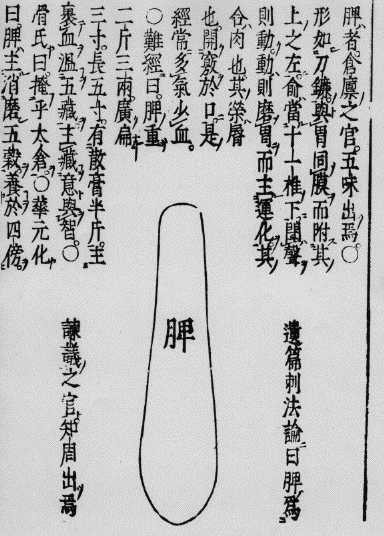 脾者倉廩之官五味出焉〇
形如刀鐮與胃同膜而附其
上之左俞當十一椎下聞聲
則動動則磨胃而主運化其
合肉也其榮脣
也開竅於口是
經常多氣少血
〇難經曰脾重
二斤三兩廣扁
三寸長五寸有散膏半斤主
裹血溫五藏主藏意與智〇
滑氏曰掩乎太倉〇華元化
曰脾主消磨五穀養於四傍
脾
遺篇刺法論曰脾爲
諫議之官知周出焉